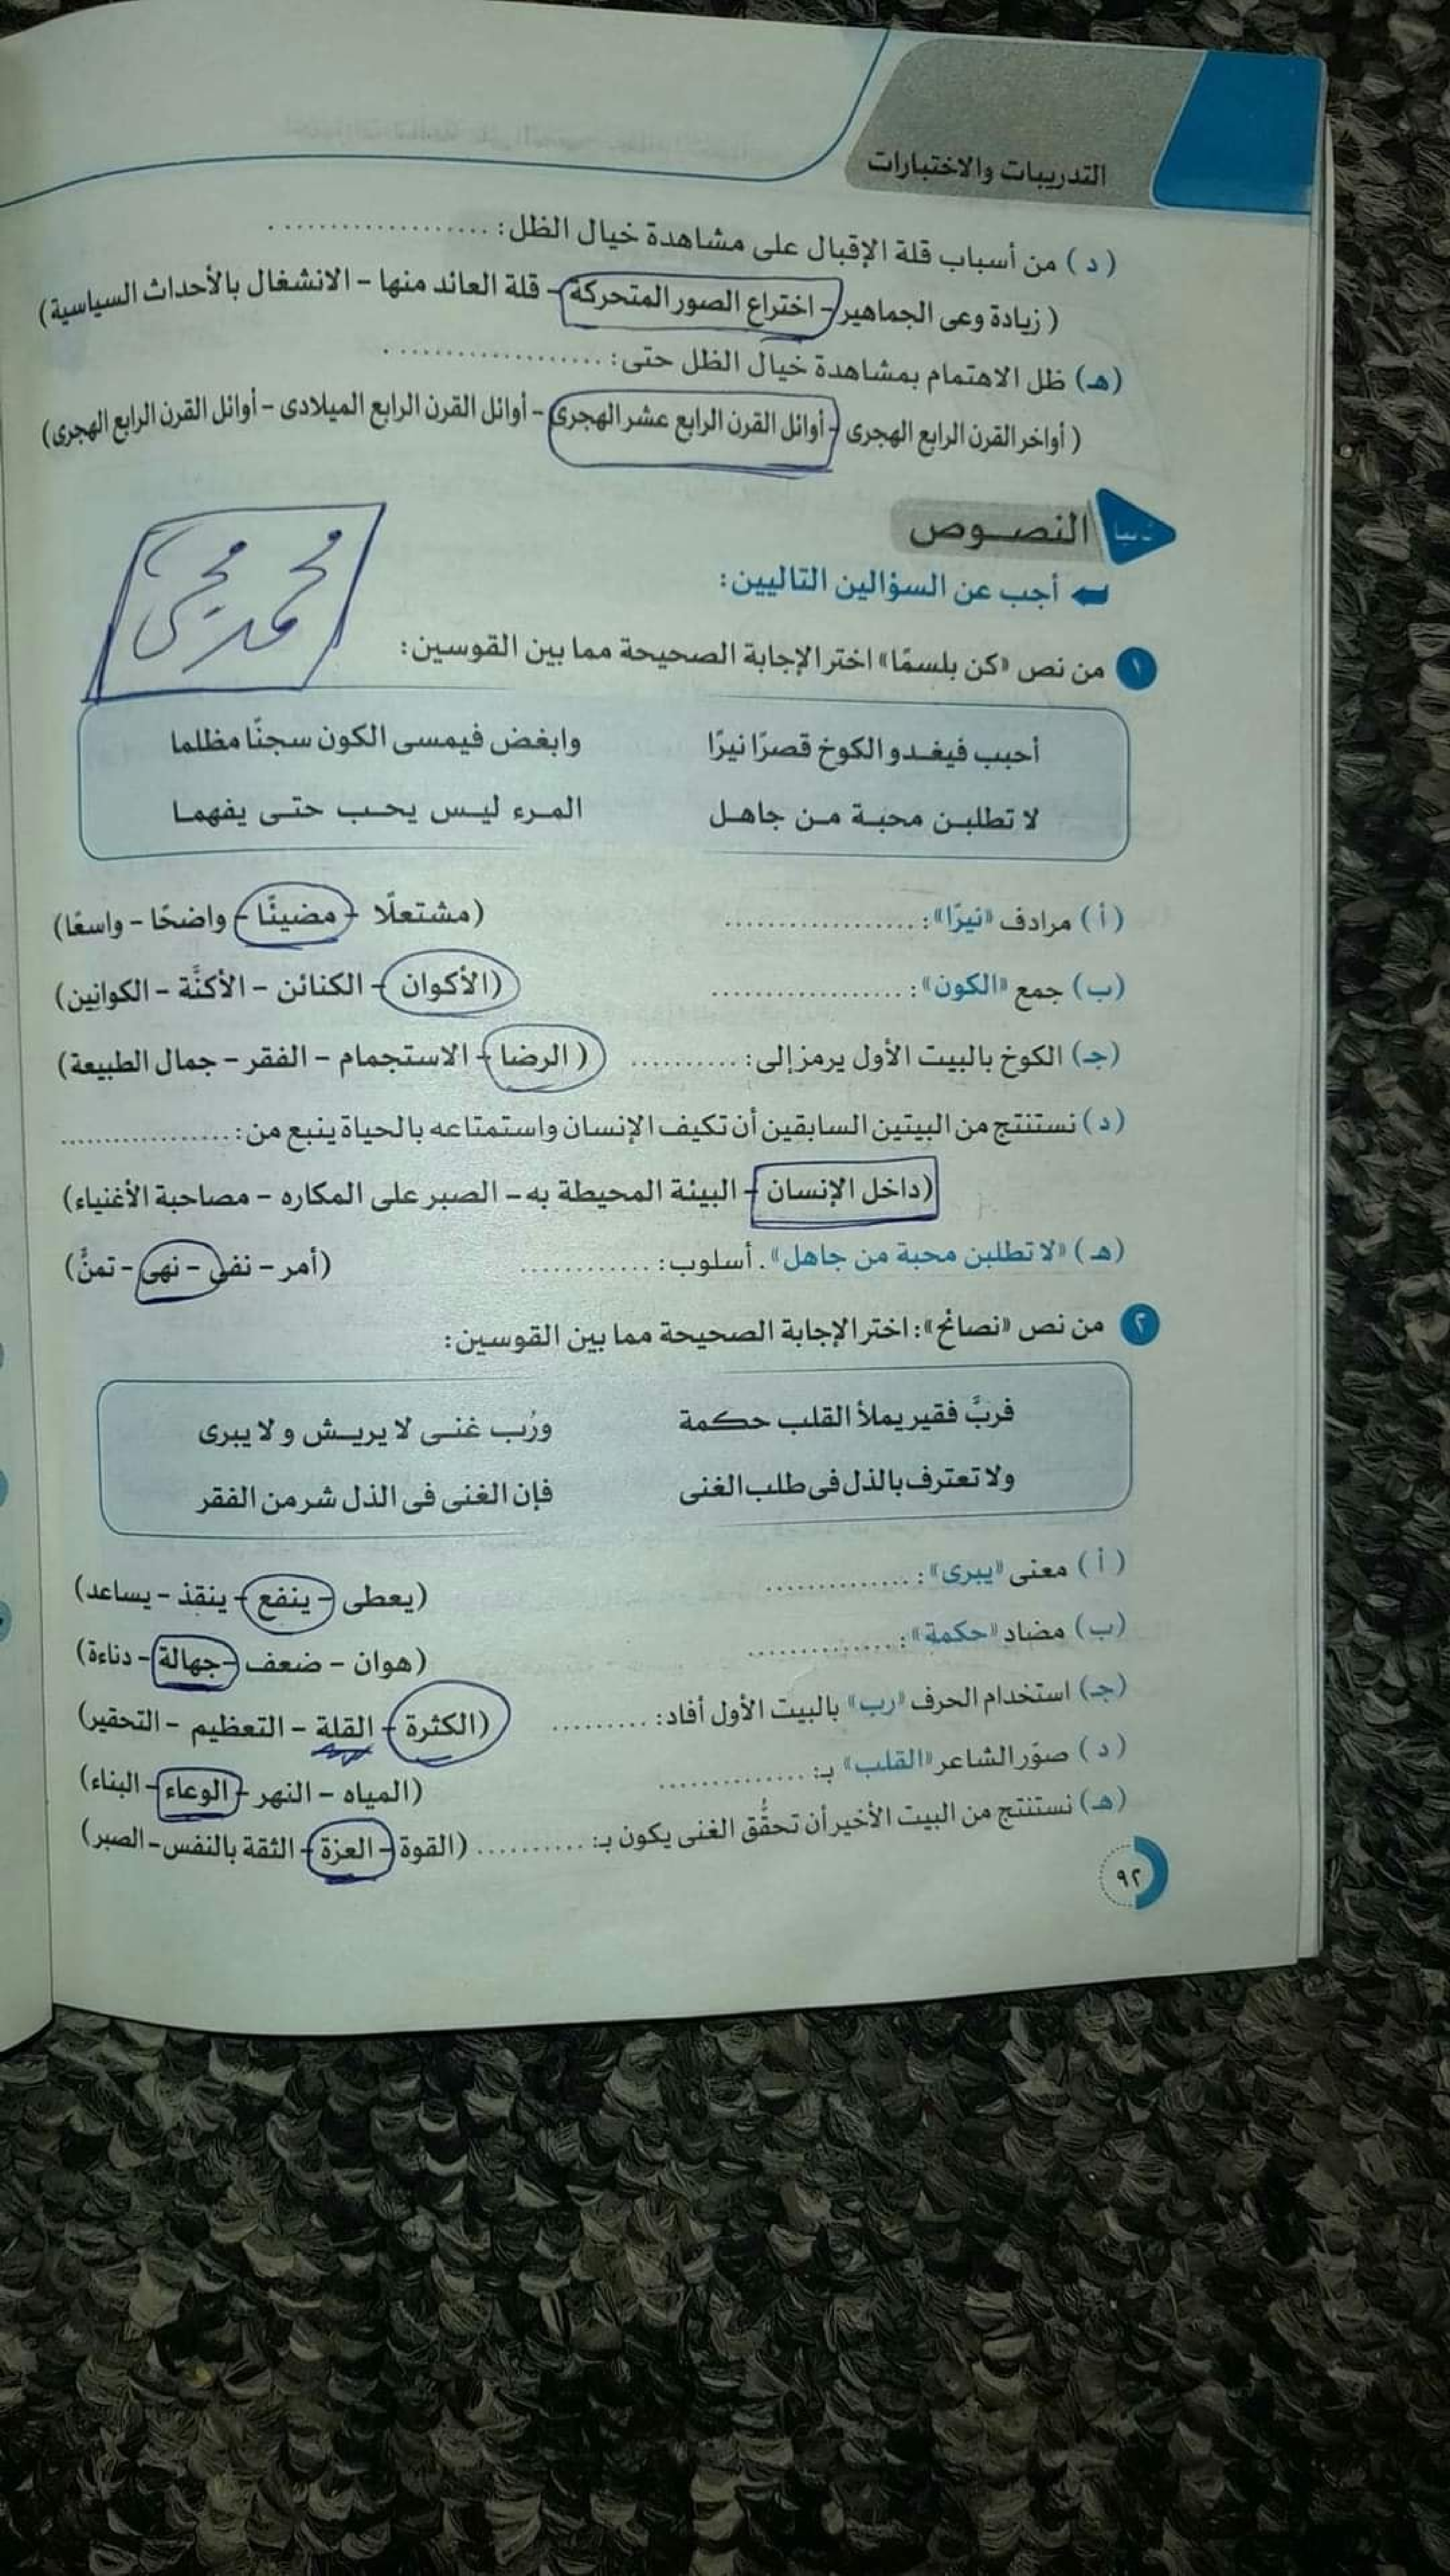 التدريبات والاختبارات
( د ) من أسباب قلة الإقبال على مشاهدة خيال الظل: ...................
( زيادة وعى الجماهير - اختراع الصور المتحركة - قلة العائد منها - الانشغال بالأحداث السياسية)
(هـ) ظل الاهتمام بمشاهدة خيال الظل حتى: ...................
( أواخر القرن الرابع الهجرى - أوائل القرن الرابع عشر الهجرى - أوائل القرن الرابع الميلادى - أوائل القرن الرابع الهجرى)
النصوص
أجب عن السؤالين التاليين:
١ من نص «كن بلسمًا» اختر الإجابة الصحيحة مما بين القوسين:
أحبب فيغدو الكوخ قصرًا نيرًا وابغض فيمسى الكون سجنًا مظلما
لا تطلبن محبة من جاهل المرء ليس يحب حتى يفهما
( أ ) مرادف «نيرًا»: .................. (مشتعلًا - مضيئًا - واضحًا - واسعًا)
(ب) جمع «الكون»: .................. (الأكوان - الكنائن - الأكنَّة - الكوانين)
(جـ) الكوخ بالبيت الأول يرمز إلى: .......... ( الرضا - الاستجمام - الفقر - جمال الطبيعة)
( د ) نستنتج من البيتين السابقين أن تكيف الإنسان واستمتاعه بالحياة ينبع من: ..................
(داخل الإنسان - البيئة المحيطة به - الصبر على المكاره - مصاحبة الأغنياء)
(هـ) «لا تطلبن محبة من جاهل». أسلوب: ............ (أمر - نفى - نهى - تمنٍّ)
٢ من نص «نصائح»: اختر الإجابة الصحيحة مما بين القوسين:
فربَّ فقير يملأ القلب حكمة ورُب غنى لا يريش و لا يبرى
ولا تعترف بالذل فى طلب الغنى فإن الغنى فى الذل شر من الفقر
( أ ) معنى «يبرى»: .............. (يعطى - ينفع - ينقذ - يساعد)
(ب) مضاد «حكمة»: .............. (هوان - ضعف - جهالة - دناءة)
(جـ) استخدام الحرف «رب» بالبيت الأول أفاد: ......... (الكثرة - القلة - التعظيم - التحقير)
( د ) صوَّر الشاعر «القلب» بـ: .............. (المياه - النهر - الوعاء - البناء)
(هـ) نستنتج من البيت الأخير أن تحقُّق الغنى يكون بـ: .......... (القوة - العزة - الثقة بالنفس - الصبر)
٩٢